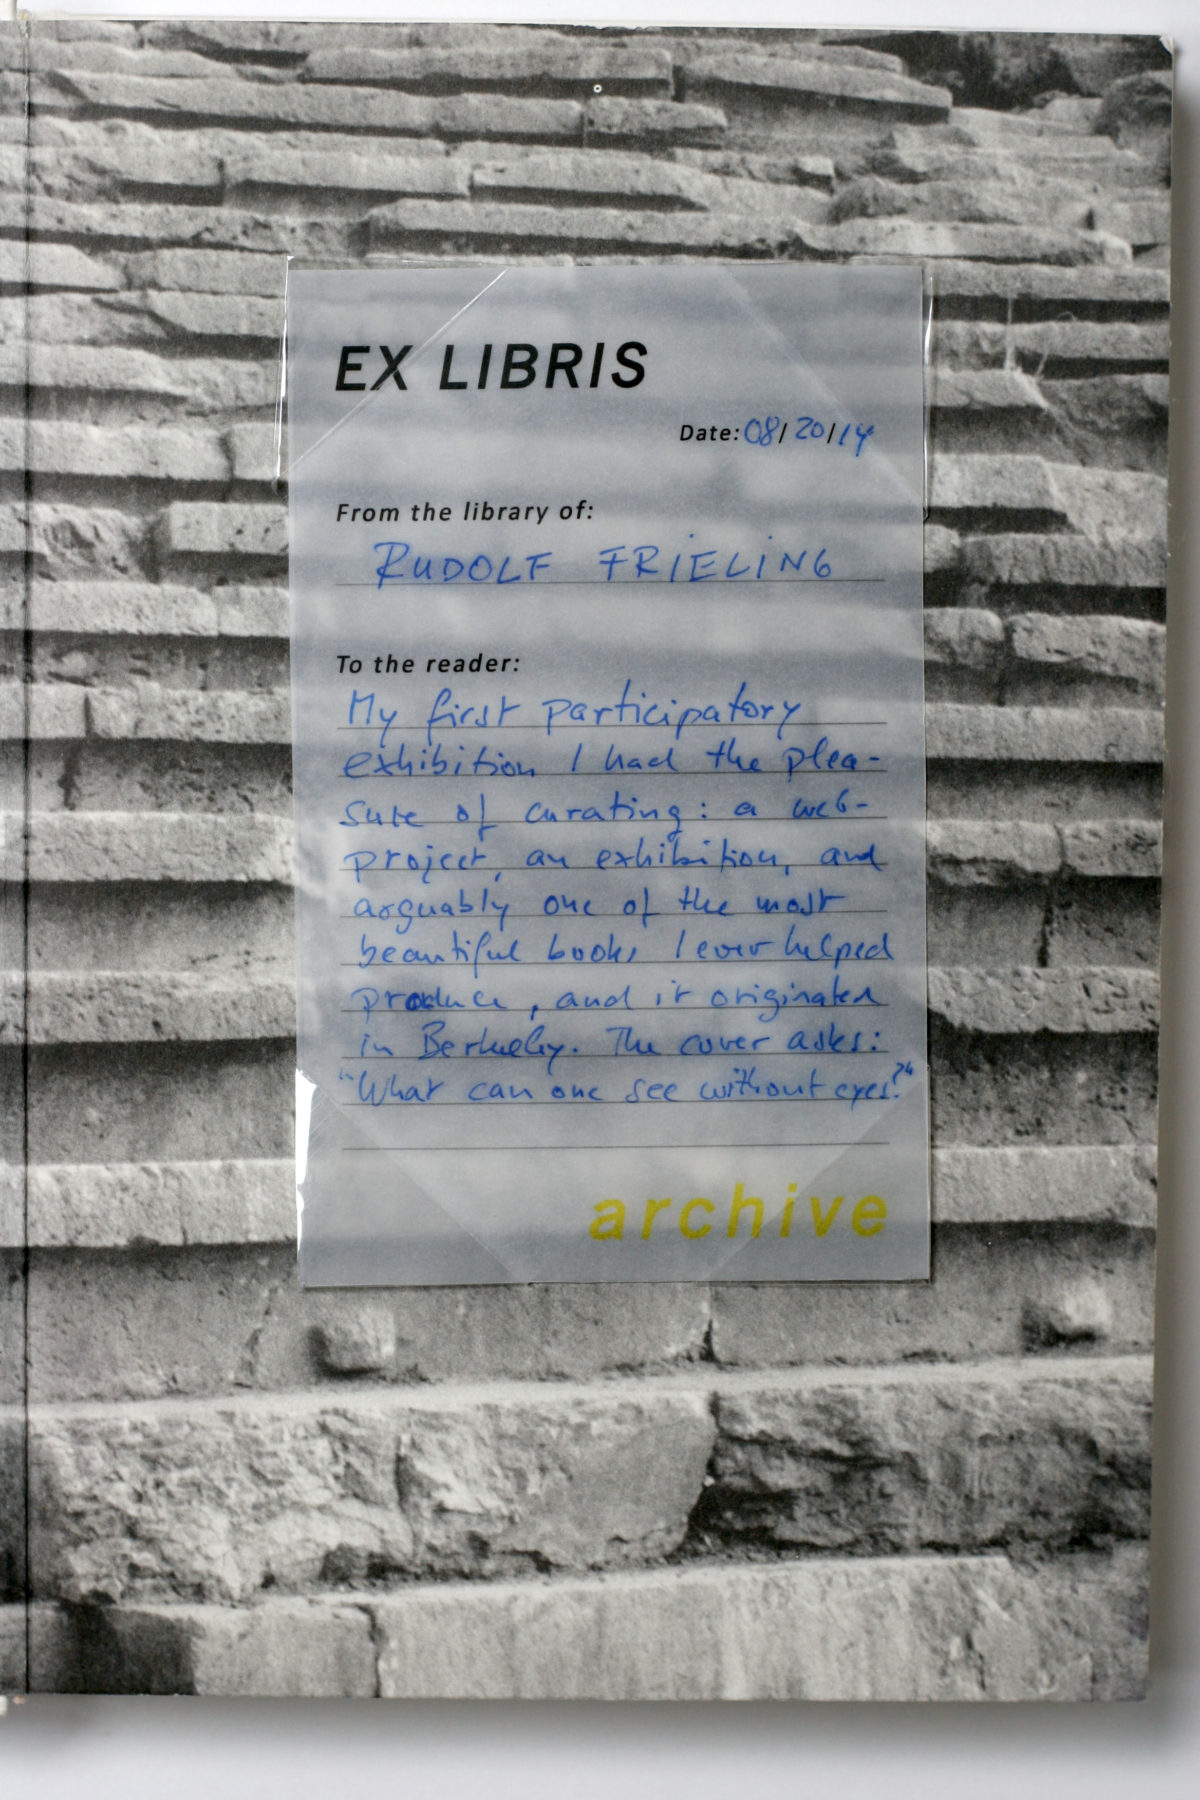 EX LIBRIS
Date: 08/20/14
From the library of:
RUDOLF FRIELING
To the reader:
My first participatory
exhibition I had the plea-
sure of curating: a web-
project, an exhibition, and
arguably one of the most
beautiful books I ever helped
produce, and it originated
in Berkeley. The cover asks:
"What can one see without eyes?"
archive